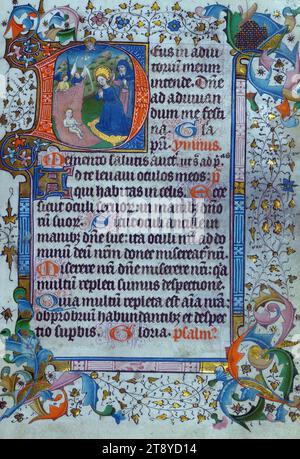 Deus in adiu
torium meum
intende. Dñe
ad adiuuan
dum me festi
na. Gla
pri. ymnus.
Memento salutis auct.
Ad te leuaui oculos meos:
qui habitas in celis. Ecce
sicut oculi seruorum in manib; dño
rũ suor. Sicut oculi ancille in
manib; dñe sue: ita oculi nri ad do
minũ deũ nrm donec misereat nri.
Miserere nri dñe miserere nri: qa
multum repleti sumus despectione.
Quia multũ repleta est aĩa nrã:
obprobriũ habundantib; et despec
tio supbis. Gloria. psalm9
alamy
2T8YD14